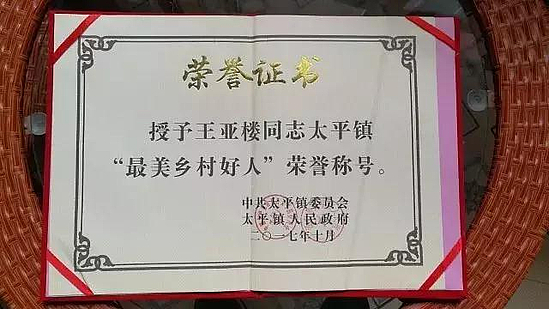 荣誉证书
授予王亚楼同志太平镇
“最美乡村好人”荣誉称号。
中共太平镇委员会
太平镇人民政府
二〇一七年十月